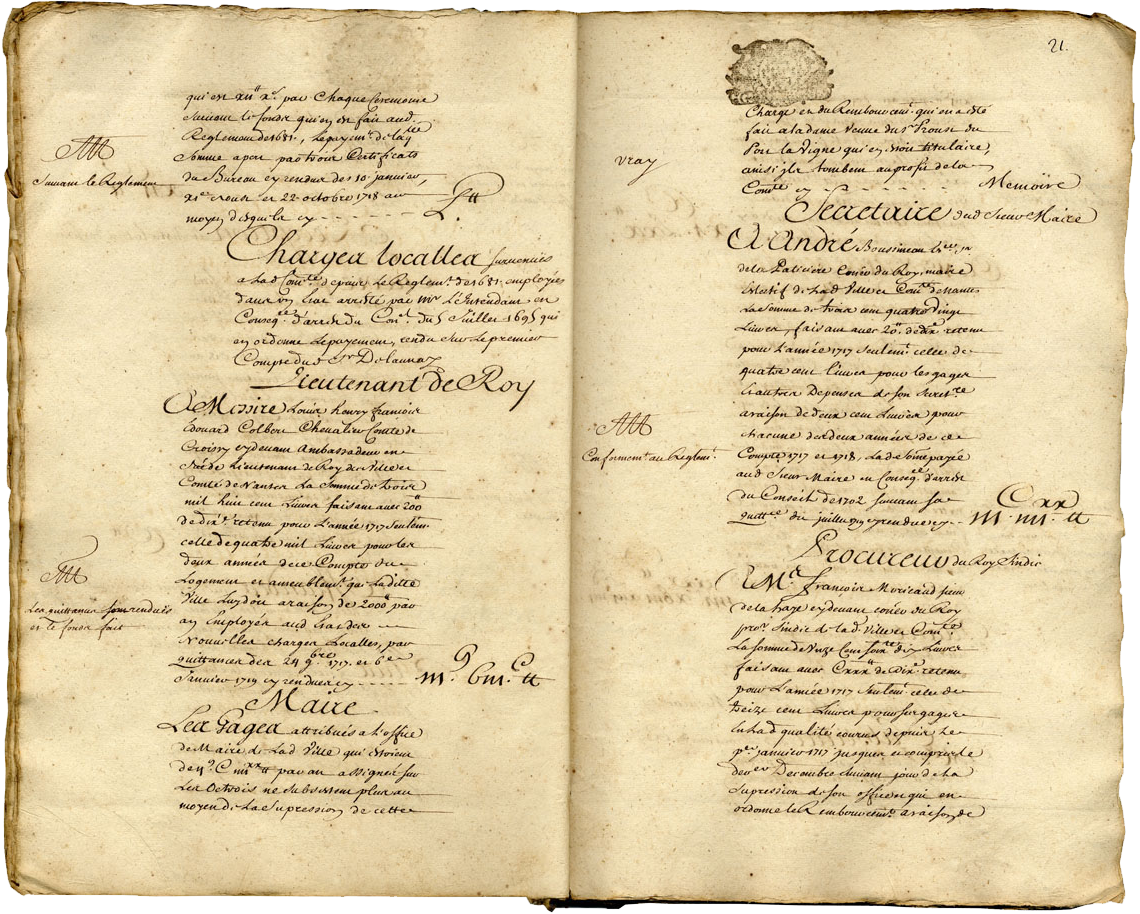 qui est xii^tt x^s par Chaque Ceremonie
suivant le fonds qui en est fait aud
Reglement de 1681, Lepayem^t de laq^lle
Somme apert par trois Certificats
du Bureau cy rendus des 10 janvier,
et 22 octobre 1718 au
moyen desquels cy
Suivant le Reglement
Charges localles survenues
a lad Com^té depuis Le Reglem^t de 1681 employées
dans un Etat arresté par M^r L'Intendant en
Conseq^ce d'arrest du Con^el du 5 Juillet 1695 qui
en ordonne Lepayement, rendu sur Lepremier
Compte du S^r Delaunay
Lieutenant de Roy
A Messire Louis henry francois
Edouard Colbert Chevalier Comte de
Croissy cydevant Ambassadeur en
Suede Lieutenant de Roy des Ville et
Comté de Nantes La Somme de trois
mil huit cent Livres faisant avec 200^tt
de dix^e retenu pour L'année 1717 seulem^t
celle de quatre mil Livres pour les
deux années de ce Compte du
Logement et ameublem^t que Laditte
Ville Luy doit araison de 2000^tt par
an Employée aud Etat des
Nouvelles charges Localles, par
quittances des 24 9^bre 1717 et 6^e
Janvier 1719 cy rendues cy
Les quittances sont rendues
et le fonds fait
Maire
Les Gages attribués a L'office
de Maire de Lad Ville qui etoient
par an assignés sur
Les Octrois ne subsistent plus au
moyen de La Supression de cette
21.
Charge et du Rembourcem^t qui en a esté
fait a la dame Veuve du S^r Proust du
Port la Vigne qui en etoit titulaire,
ainsi ils tombent au profit de la
Com^té cy Memoire
vray
Secretaire dud Sieur Maire
A André Boussineau
de la Patissiere Con^er du Roy, maire
Electif de Lad Ville et Com^té de Nantes
La Somme de trois cent quatre Vingt
Livres, faisant avec 20^tt de dix^e retenu
pour L'année 1717 seulem^t celle de
quatre cent Livres pour les gages
Et autres Depenses de son Secret^re
araison de deux cent Livres pour
chacune des deux années de ce
Compte 1717 et 1718, Lad Somme payée
aud Sieur Maire en Conseq^ce d'arrest
du Conseil de 1702 suivant sa
quitt^ce du juillet 1719 cy rendue cy
Conformem^t au Reglem^t
Procureur du Roy Sindic
A M^e francois Moricaud sieur
de la haye cydevant Con^er du Roy
pro^r Sindic de lad Ville et Com^té
La Somme de
faisant avec de Dix^e retenu
pour L'année 1717 seulem^t celle de
treize cent Livres pour ses gages
En Lad qualité courus depuis Le
p^er janvier 1717 jusques et compris le
dernier Decembre suivant jour de La
Supression de son office et qui en
ordonne le Rembourcem^t araison de